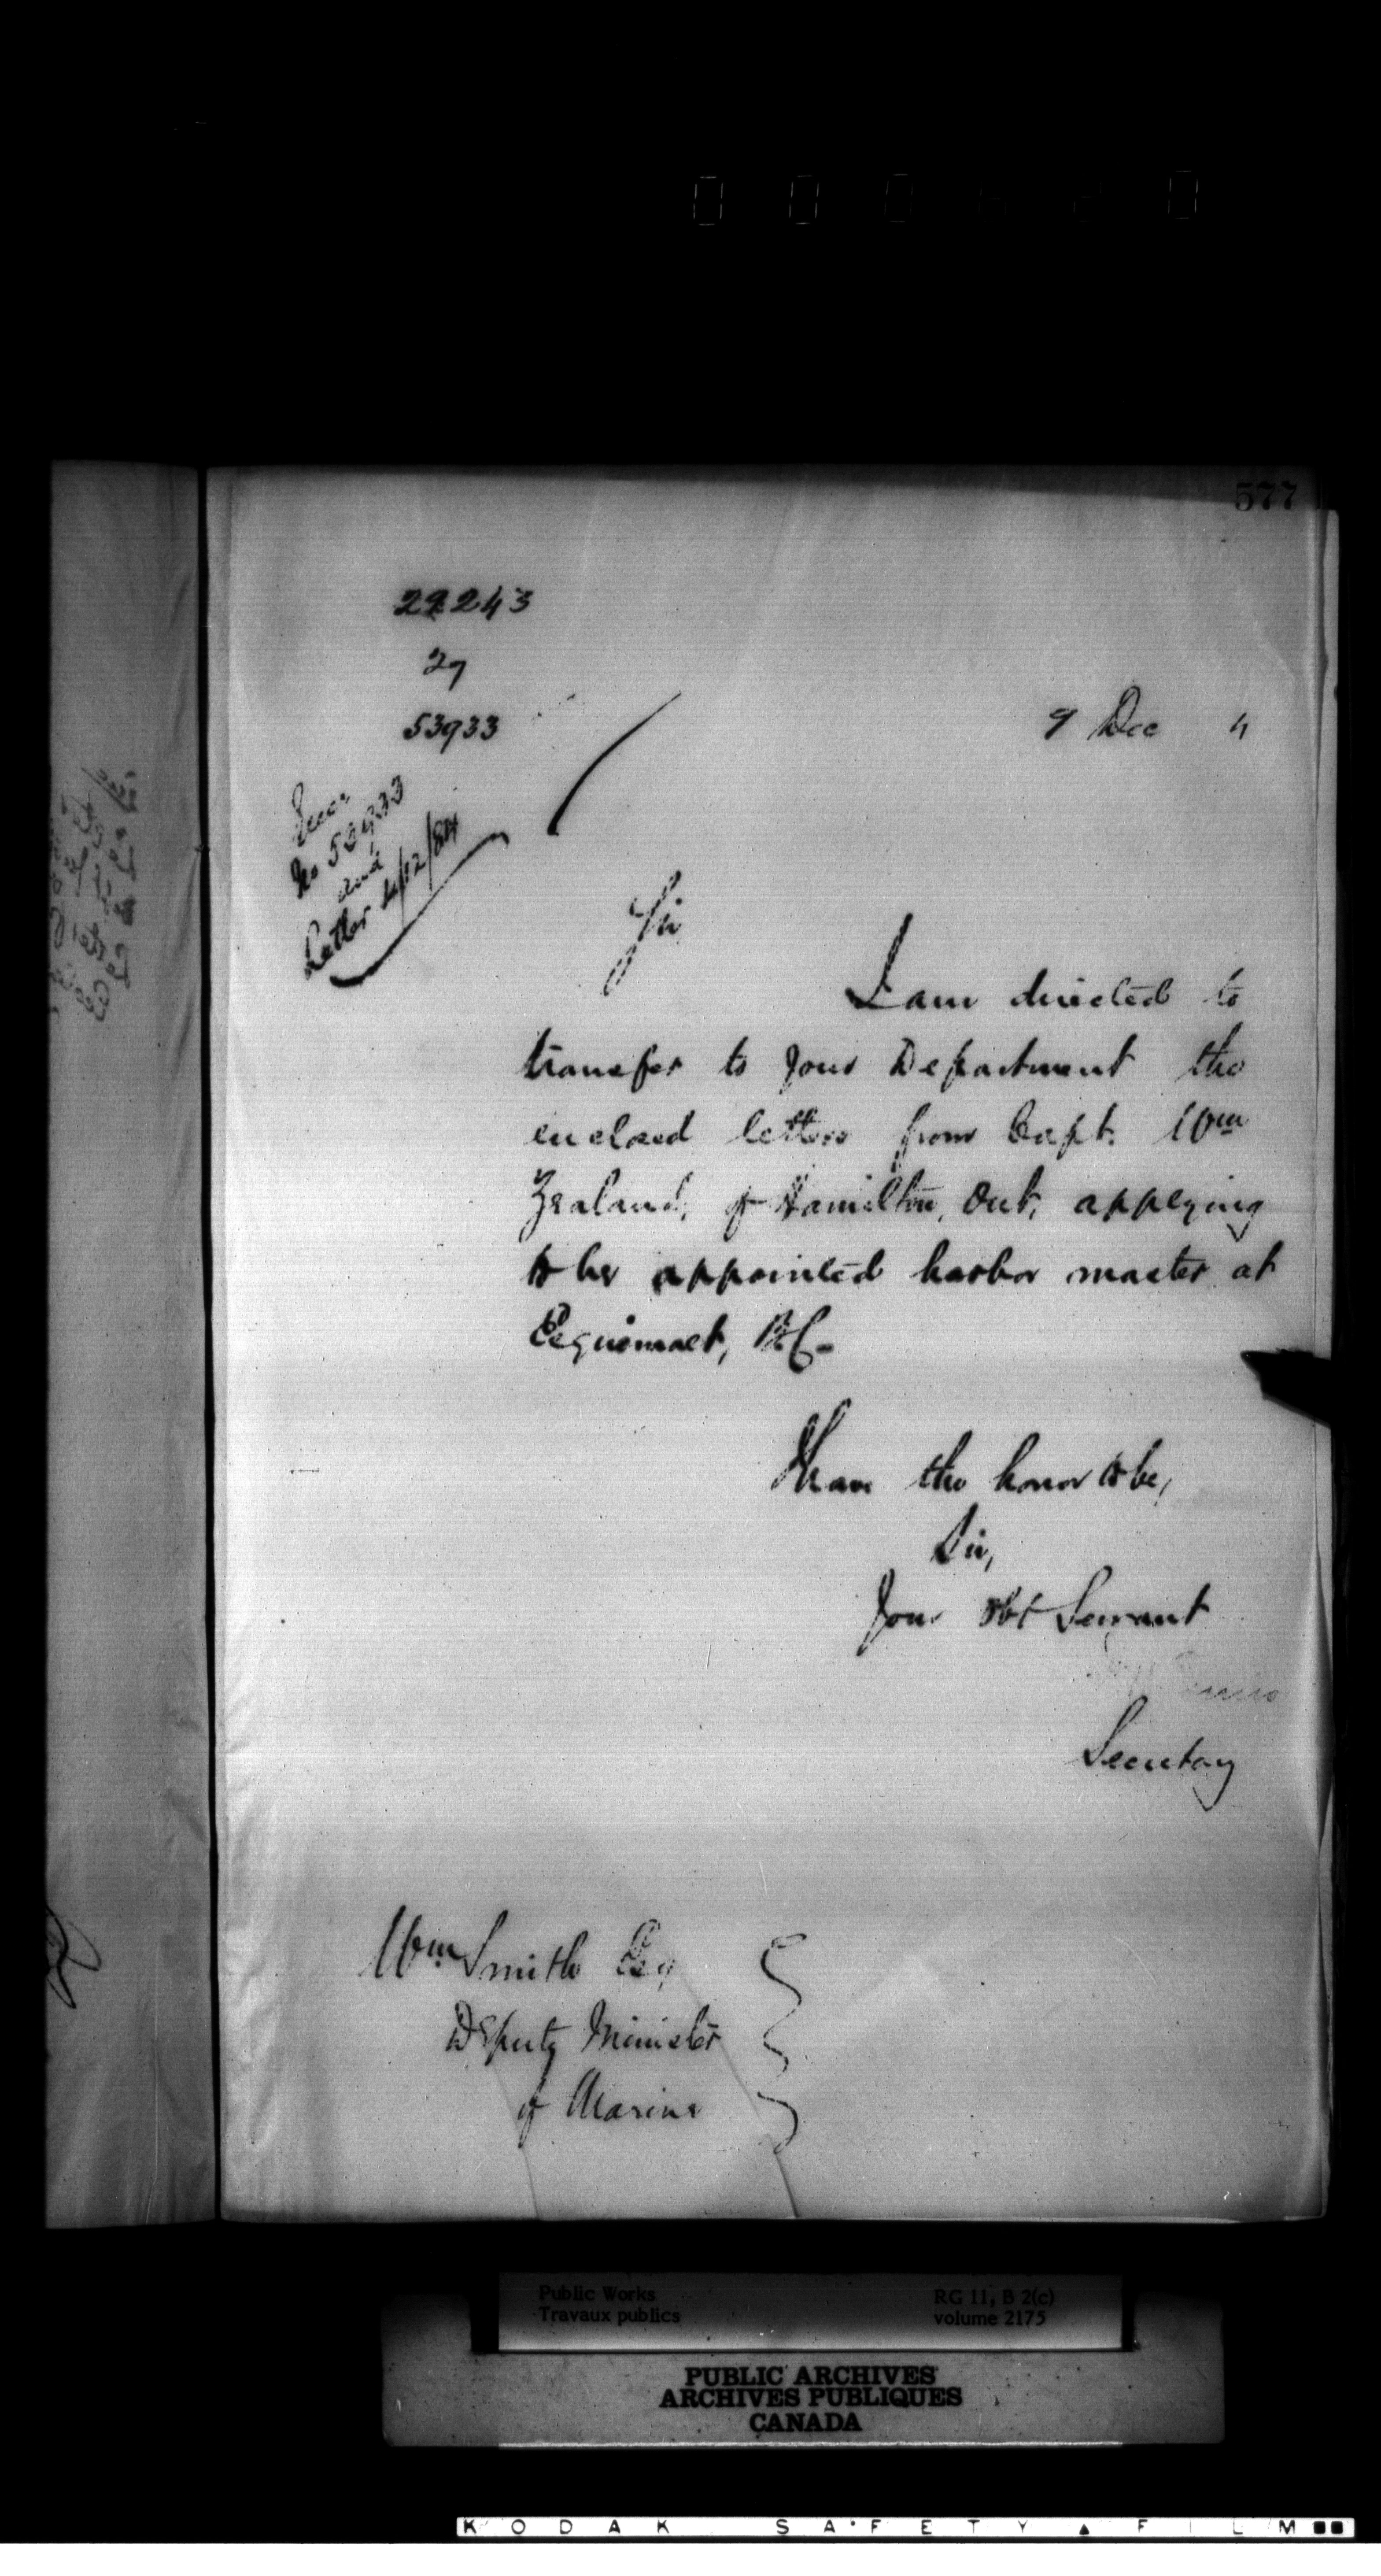 577
22243
27
53933
9 Dec 4
No 53933
and
Letter 4/12/84
Sir
I am directed to
transfer to your Department the
enclosed letters from Capt. Wm
Zealand, of Hamilton, Ont, applying
to be appointed harbor master at
Esquimalt, BC-
I have the honor to be,
Sir,
Your obt Servant
Secretary
Wm Smith Esq
Deputy Minister
of Marine
Public Works
Travaux publics
RG 11, B 2(c)
volume 2175
PUBLIC ARCHIVES
ARCHIVES PUBLIQUES
CANADA
KODAK SAFETY ▲ FILM